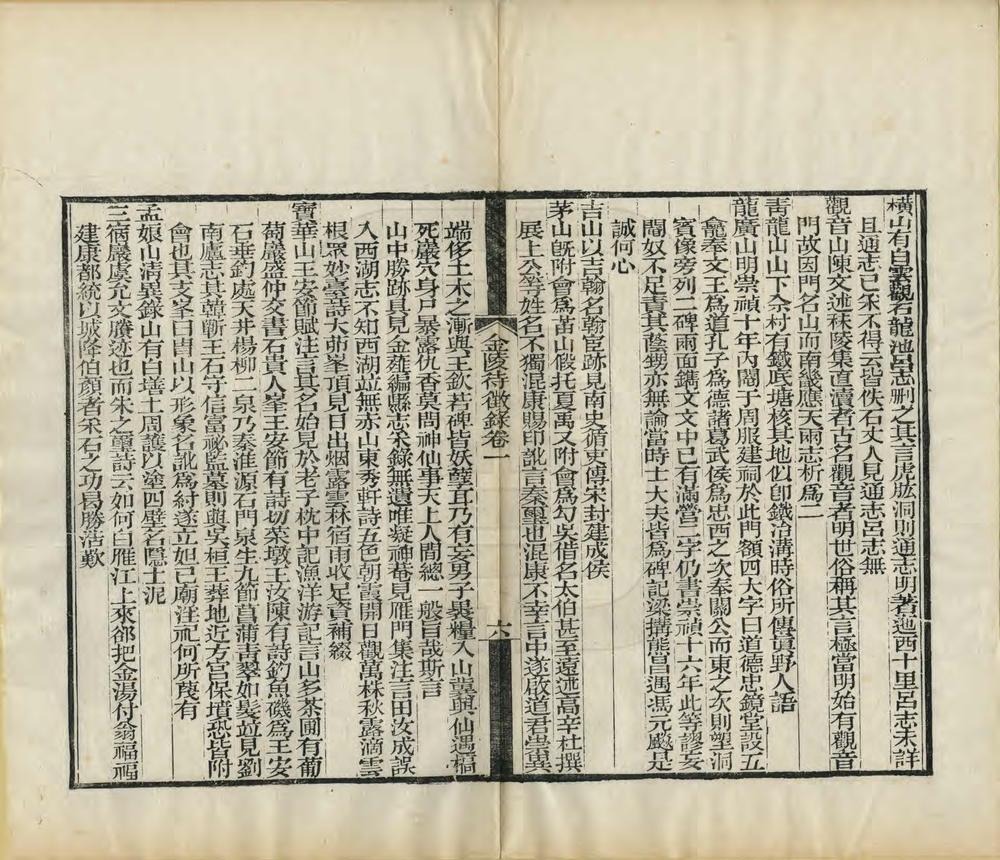 橫山有白雲觀石龍池呂志刪之其言虎肱洞則通志明著迤西十里呂志未詳
且通志已采不得云皆佚石丈人見通志呂志無
觀音山陳文述秣陵集直瀆者古名觀音者明世俗稱其言極當明始有觀音
門故因門名山而南畿應天兩志析爲二
青龍山山下余村有鐵底塘核其地似卽鐵冶溝時俗所傳眞野人語
龍廣山明崇禎十年內閹于周服建祠於此門額四大字曰道德忠鏡堂設五
龕奉文王爲道孔子爲德諸葛武侯爲忠西之次奉關公而東之次則塑洞
賓像旁列二碑兩面鐫文文中已有滿營二字仍書崇禎十六年此等謬妄
閹奴不足責其蔭甥亦無論當時士大夫皆爲碑記梁搆熊昌遇馮元飈是
誠何心
吉山以吉翰名翰宦跡見南史循吏傳宋封建成侯
茅山旣附會爲苗山假托夏禹又附會爲句吳借名太伯甚至遠述高辛杜撰
展上公等姓名不獨混康賜印訛言秦璽也混康不幸言中遂啟道君崇異
金陵待徵錄卷一
六
端侈土木之漸與王欽若碑皆妖孽耳乃有妄男子褁糧入山冀與仙遇槁
死巖穴身尸暴露仇香莫問神仙事天上人間總一般旨哉斯言
山中勝跡具見金薤編縣志采錄無遺唯凝神菴見雁門集注言田汝成誤
入西湖志不知西湖竝無赤山東秀軒詩五色朝霞開日觀萬株秋露滴雲
根眾妙臺詩大茆峯頂見日出烟露雲林宿雨收足資補綴
寶華山王安節賦注言其名始見於老子枕中記漁洋游記言山多茶圃有葡
萄巖盛仲交書石貴人峯王安節有詩切菜墩王汝陳有詩釣魚磯爲王安
石垂釣處天井楊柳二泉乃秦淮源石門泉生九節菖蒲青翠如髮竝見劉
南廬志其韓蘄王石守信富祕監墓則與吳桓王葬地近方宮保墳恐皆附
會也其支峯曰胄山以形象名訛爲紂遂立妲己廟汪祀何所蔑有
孟娘山淸異錄山有白墡土周護以塗四壁名隱士泥
三宿巖虞允文賸迹也而朱之璽詩云如何白雁江上來郤把金湯付翁福福
建康都統以城降伯顏者采石之功曷勝浩歎